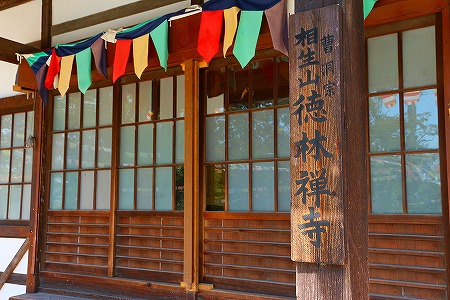 曹洞宗
相生山徳林禅寺